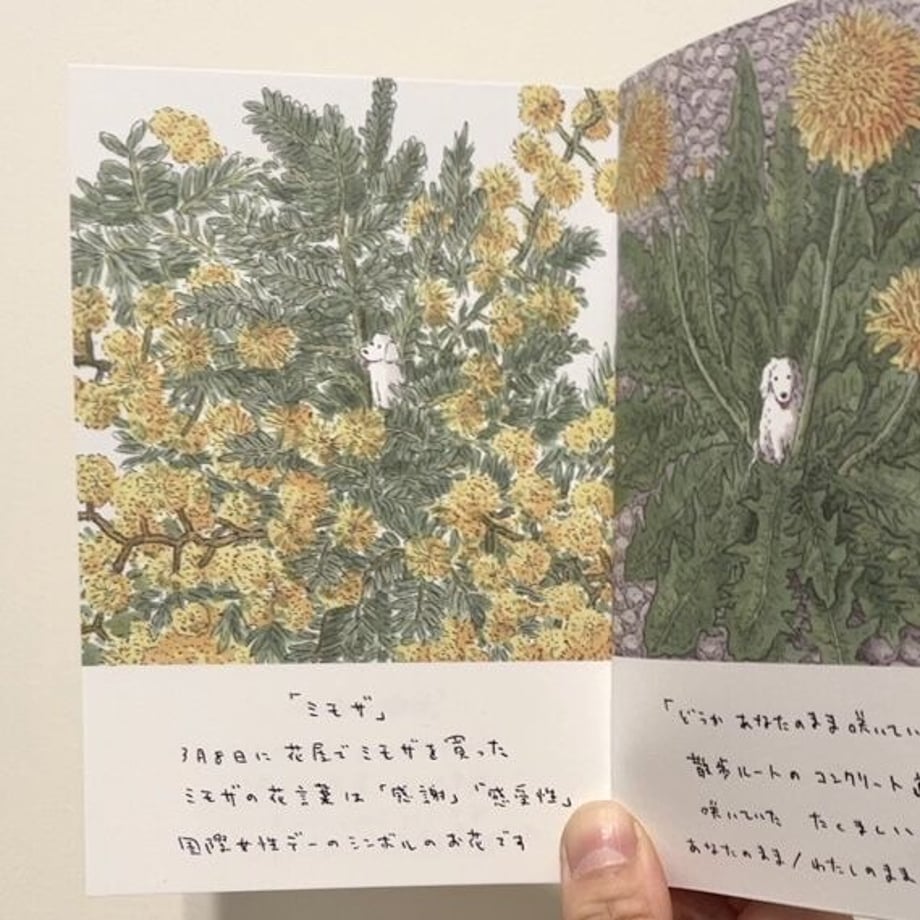 「ミモザ」
3月8日に 花屋で ミモザを 買った
ミモザの 花言葉は 「感謝」 「感受性」
国際女性デーのシンボルのお花です
「どうか あなたのまま 咲いてい
散歩ルートの コンクリート
咲いていた たくましい
あなたのまま/わたしのまま